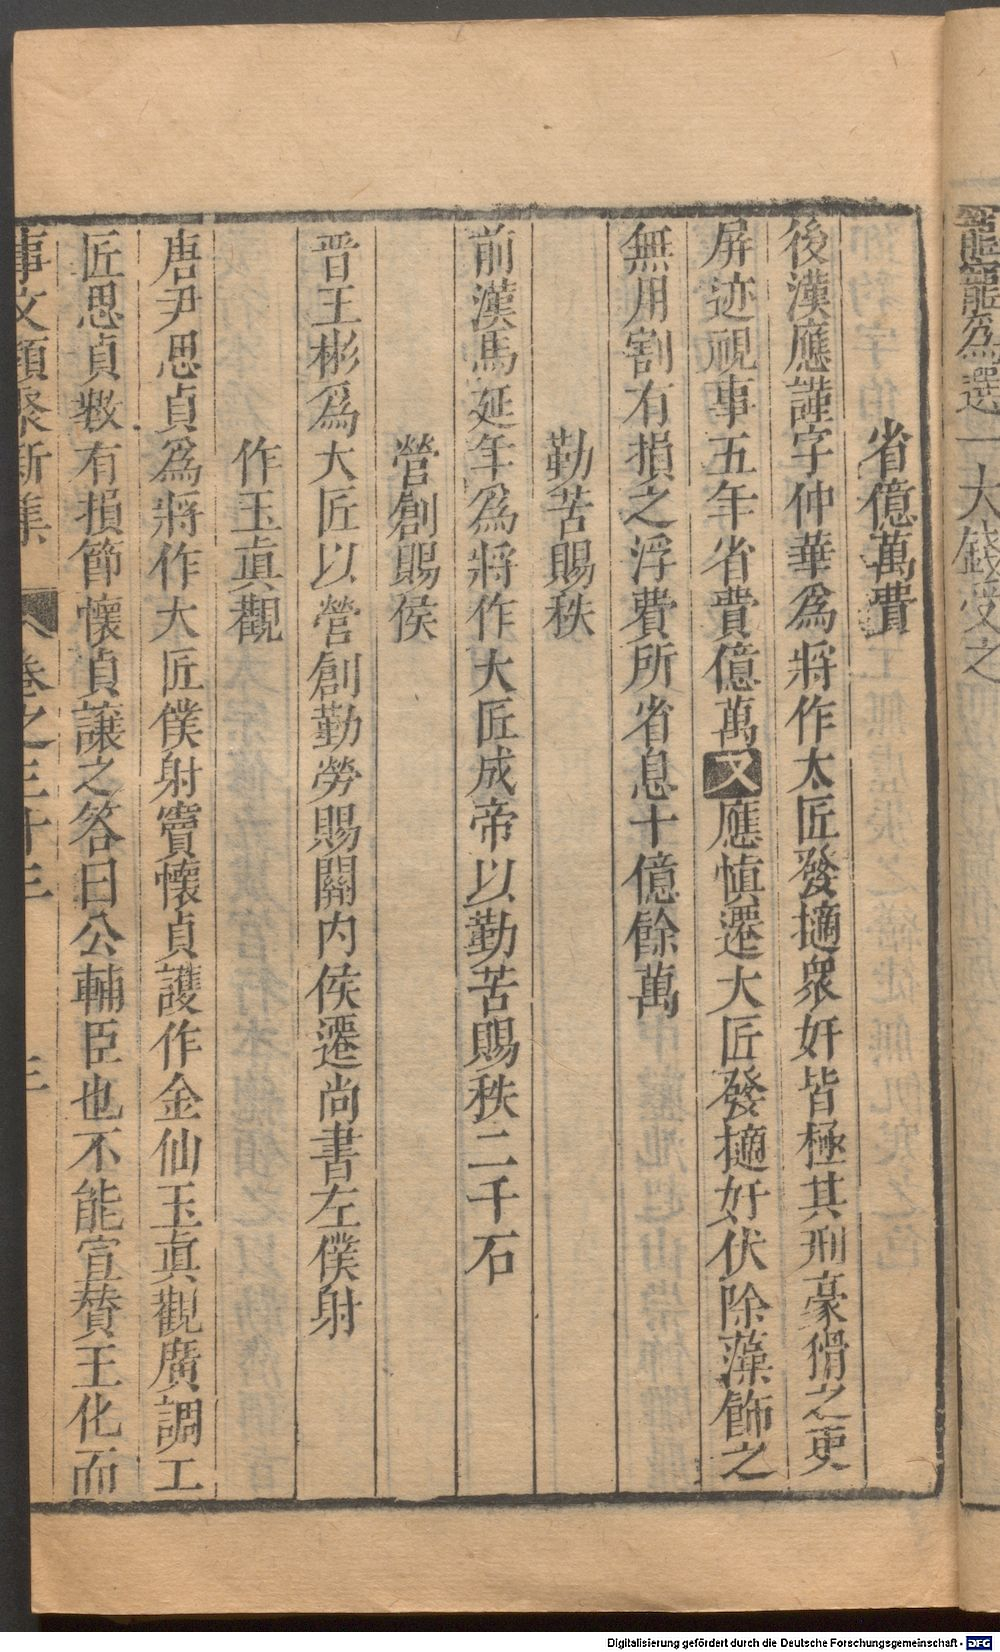 籠寵爲選一大錢受之
省億萬費
後漢應謹字仲華爲將作太匠發擿衆奸皆極其刑豪猾之吏
屏迹視事五年省費億萬又應愼遷大匠發擿奸伏除藻飾之
無用割有損之浮費所省息十億餘萬
勤苦賜秩
前漢馬延年爲將作大匠成帝以勤苦賜秩二千石
營創賜侯
晋王彬爲大匠以營創勤勞賜關内侯遷尚書左僕射
作玉眞觀
唐尹思貞爲將作大匠僕射竇懷貞護作金仙玉眞觀廣調工
匠思貞數有損節懷貞讓之答曰公輔臣也不能宣賛王化而
事文類聚新集 卷之三十三 三
Digitalisierung gefördert durch die Deutsche Forschungsgemeinschaft - DFG